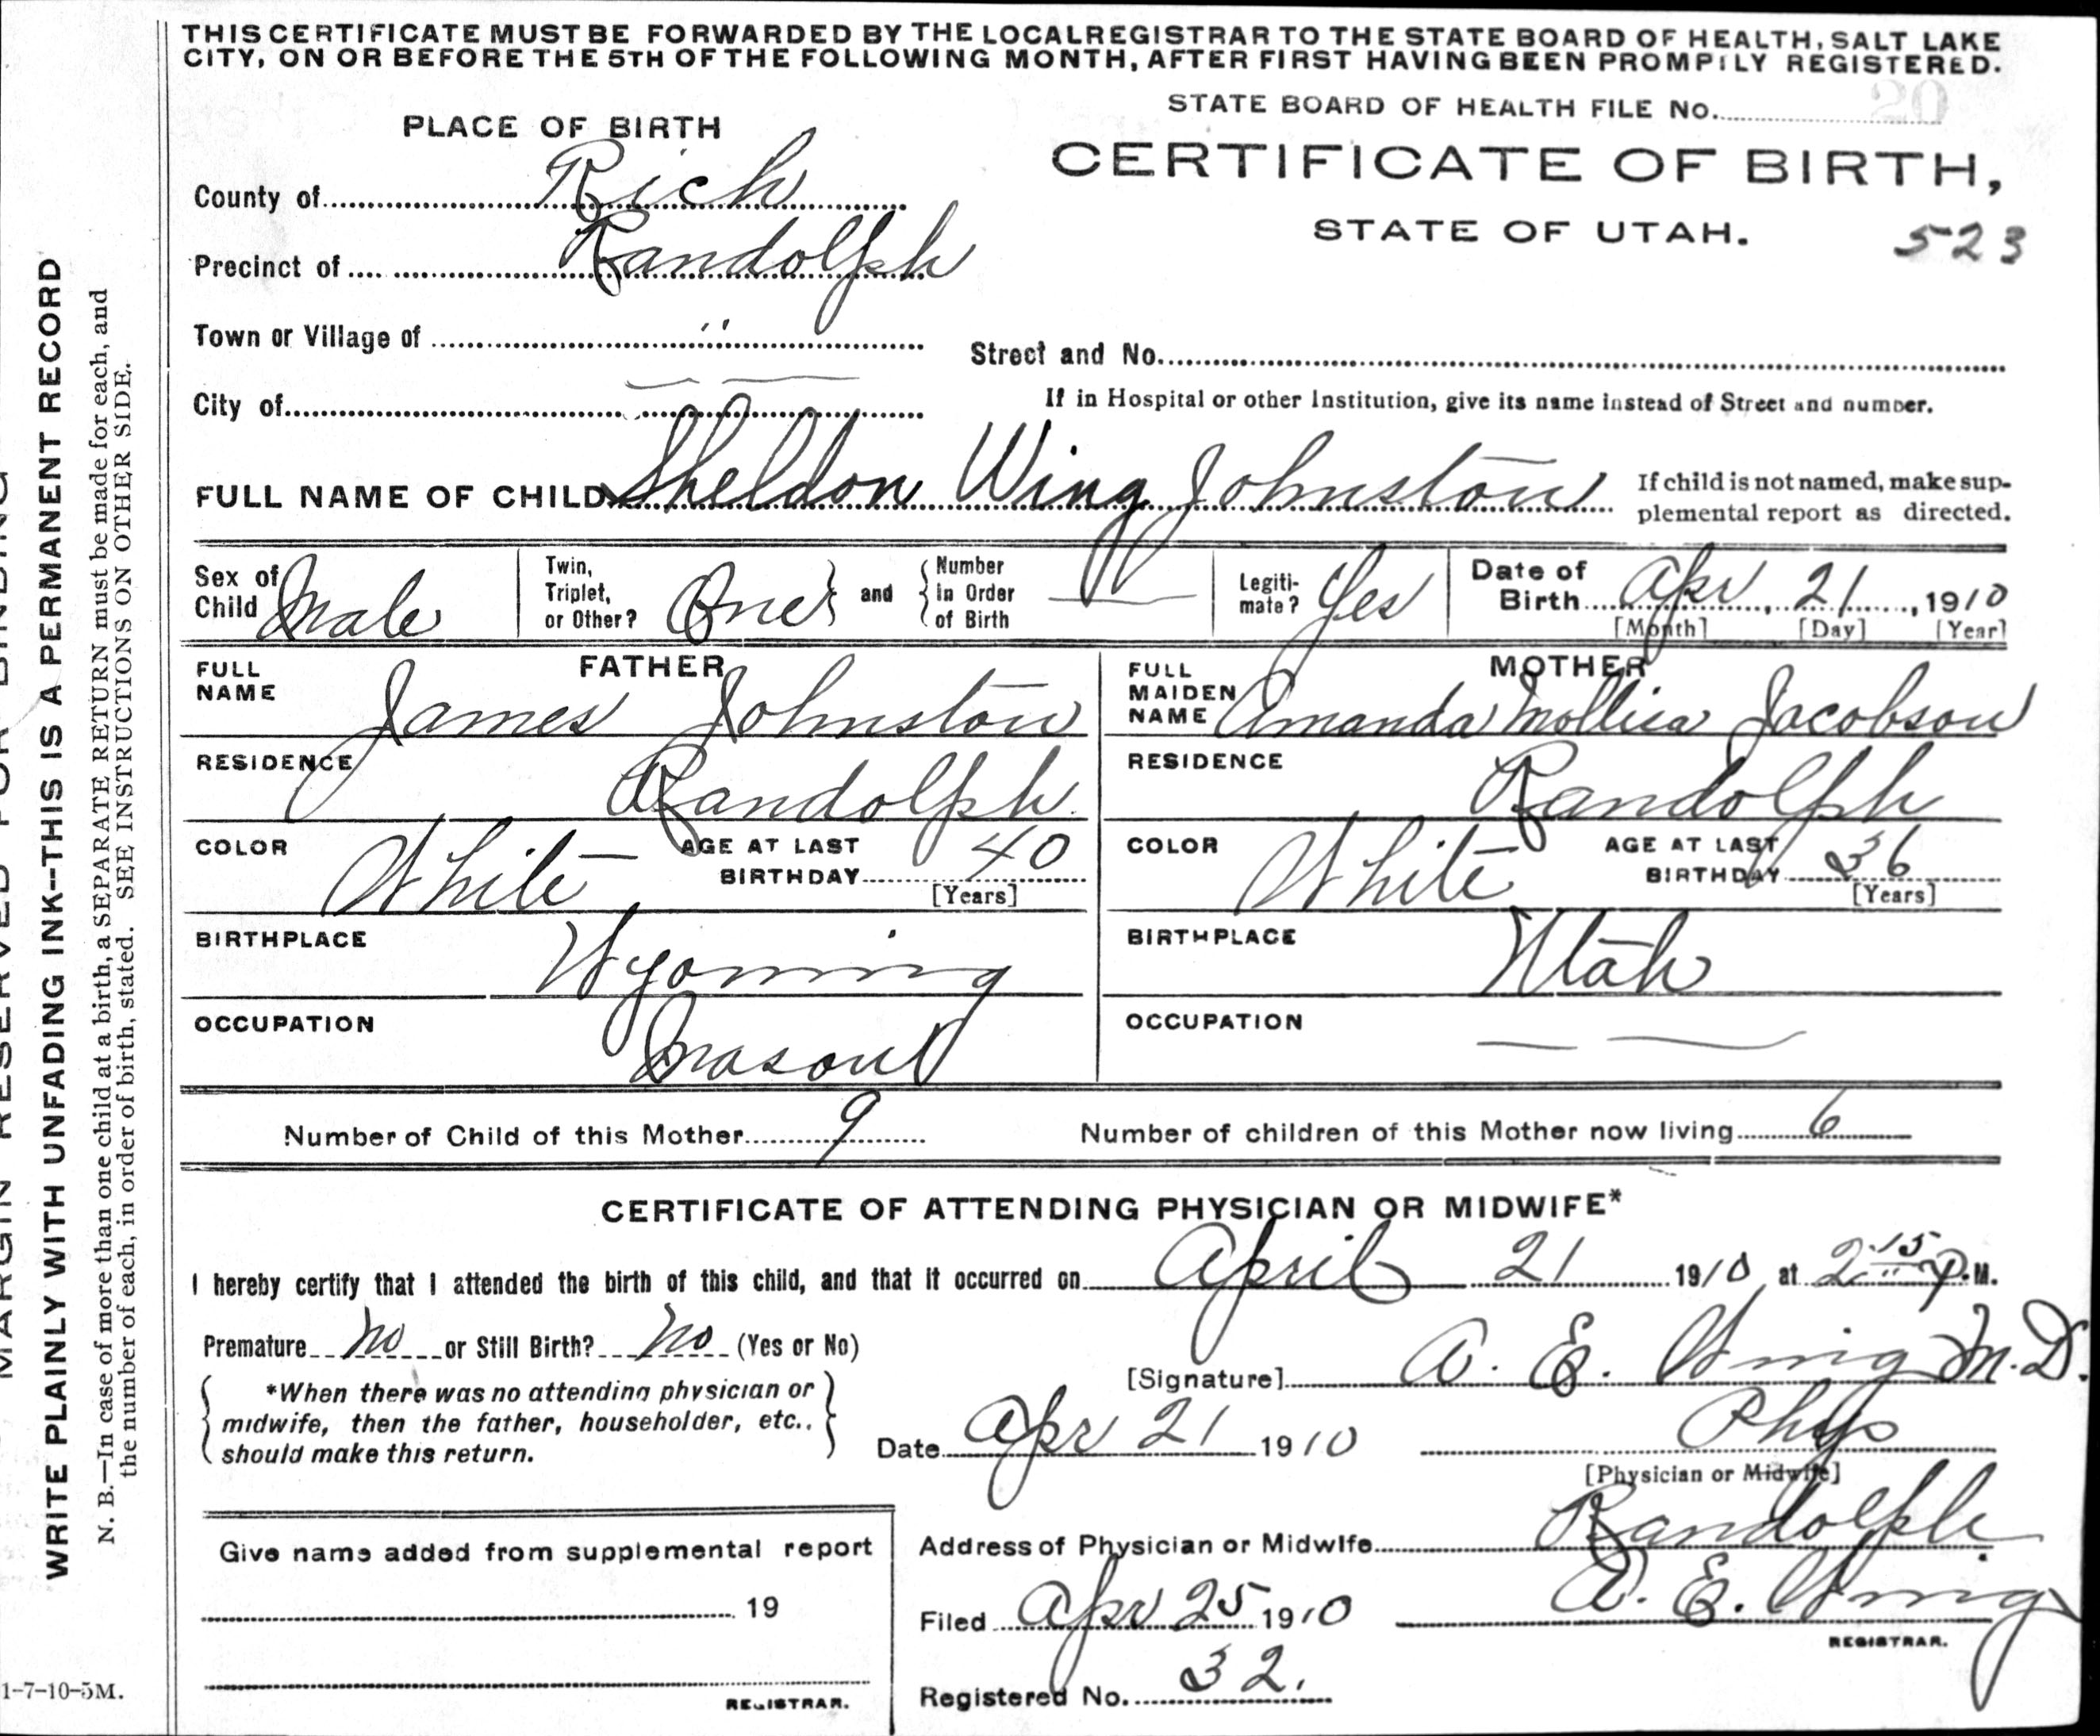 THIS CERTIFICATE MUST BE FORWARDED BY THE LOCAL REGISTRAR TO THE STATE BOARD OF HEALTH, SALT LAKE
CITY, ON OR BEFORE THE 5TH OF THE FOLLOWING MONTH, AFTER FIRST HAVING BEEN PROMPILY REGISTERED.
STATE BOARD OF HEALTH FILE No. 20
PLACE OF BIRTH
CERTIFICATE OF BIRTH,
STATE OF UTAH. 523
County of Rich
Precinct of Randolph
Town or Village of "
Street and No.
City of
If in Hospital or other Institution, give its name instead of Street and number.
FULL NAME OF CHILD Sheldon Wing Johnston
If child is not named, make sup-
plemental report as directed.
Sex of Child Male
Twin, Triplet, or Other? One and Number in Order of Birth —
Legiti-mate? Yes
Date of Birth Apr, 21, 1910
[Month] [Day] [Year]
FATHER
FULL NAME James Johnston
RESIDENCE Randolph
COLOR White AGE AT LAST BIRTHDAY 40
[Years]
BIRTHPLACE Wyoming
OCCUPATION Mason
MOTHER
FULL MAIDEN NAME Amanda Jacobson
RESIDENCE Randolph
COLOR White AGE AT LAST BIRTHDAY 36
[Years]
BIRTHPLACE Utah
OCCUPATION — —
Number of Child of this Mother 9 Number of children of this Mother now living 6
CERTIFICATE OF ATTENDING PHYSICIAN OR MIDWIFE*
I hereby certify that I attended the birth of this child, and that it occurred on April 21 1910, at 2:15 P.M.
Premature no or Still Birth? no (Yes or No)
[Signature] A. E. Wing M.D.
*When there was no attending physician or
midwife, then the father, householder, etc.,
should make this return.
Date Apr 21 1910 Phys
[Physician or Midwife]
Address of Physician or Midwife Randolph
Filed Apr 25 1910 A. E. Wing
REGISTRAR.
Registered No. 32.
Give name added from supplemental report
19
REGISTRAR.
MARGIN RESERVED FOR BINDING
WRITE PLAINLY WITH UNFADING INK--THIS IS A PERMANENT RECORD
N. B.—In case of more than one child at a birth, a SEPARATE RETURN must be made for each, and
the number of each, in order of birth, stated. SEE INSTRUCTIONS ON OTHER SIDE.
1-7-10-5M.